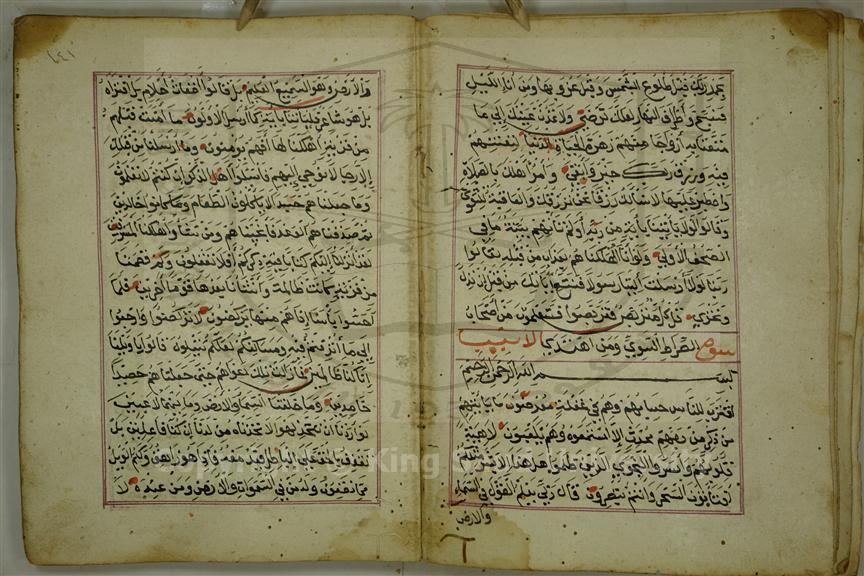 بحمد ربك قبل طلوع الشمس وقبل غروبها ومن اناء الليل
فسبح واطراف النهار لعلك ترضى ولا تمدن عينيك الى ما
متعنا به ازواجا منهم زهرة الحياة الدنيا لنفتنهم
فيه ورزق ربك خير وابقى وأمر اهلك بالصلاة
واصطبر عليها لا نسألك رزقا نحن نرزقك والعاقبة للتقوى
وقالوا لولا يأتينا بآية من ربه أولم تأتهم بينة ما في
الصحف الاولى ولو انا اهلكناهم بعذاب من قبله لقالوا
ربنا لولا ارسلت الينا رسولا فنتبع اياتك من قبل ان نذل
ونخزى قل كل متربص فتربصوا فستعلمون من اصحاب
سورة الصراط السوي ومن اهتدى الانبيا
بسم الله الرحمن الرحيم
اقترب للناس حسابهم وهم في غفلة معرضون ما يأتيهم
من ذكر من ربهم محدث الا استمعوه وهم يلعبون لاهية
قلوبهم واسروا النجوى الذين ظلموا هل هذا الا بشر مثلكم
افتأتون السحر وانتم تبصرون قال ربي يعلم القول في السماء
والارض
١٤١
والارض وهو السميع العليم بل قالوا اضغاث احلام بل افتراه
بل هو شاعر فليأتنا بآية كما ارسل الاولون ما امنت قبلهم
من قرية اهلكناها افهم يؤمنون وما ارسلنا من قبلك
الا رجالا نوحي اليهم فاسئلوا اهل الذكر ان كنتم لا تعلمون
وما جعلناهم جسدا لا يأكلون الطعام وما كانوا خالدين
ثم صدقناهم الوعد فانجيناهم ومن نشاء واهلكنا المسرفين
لقد انزلنا اليكم كتابا فيه ذكركم افلا تعقلون وكم قصمنا
من قرية كانت ظالمة وانشأنا بعدها قوما اخرين فلما
احسوا بأسنا اذا هم منها يركضون لا تركضوا وارجعوا
الى ما اترفتم فيه ومساكنكم لعلكم تسئلون قالوا يا ويلنا
انا كنا ظالمين فما زالت تلك دعواهم حتى جعلناهم حصيدا
خامدين وما خلقنا السماء والارض وما بينهما لاعبين
لو اردنا ان نتخذ لهوا لاتخذناه من لدنا ان كنا فاعلين بل
نقذف بالحق على الباطل فيدمغه فاذا هو زاهق ولكم الويل
مما تصفون وله من في السموات والارض ومن عنده لا